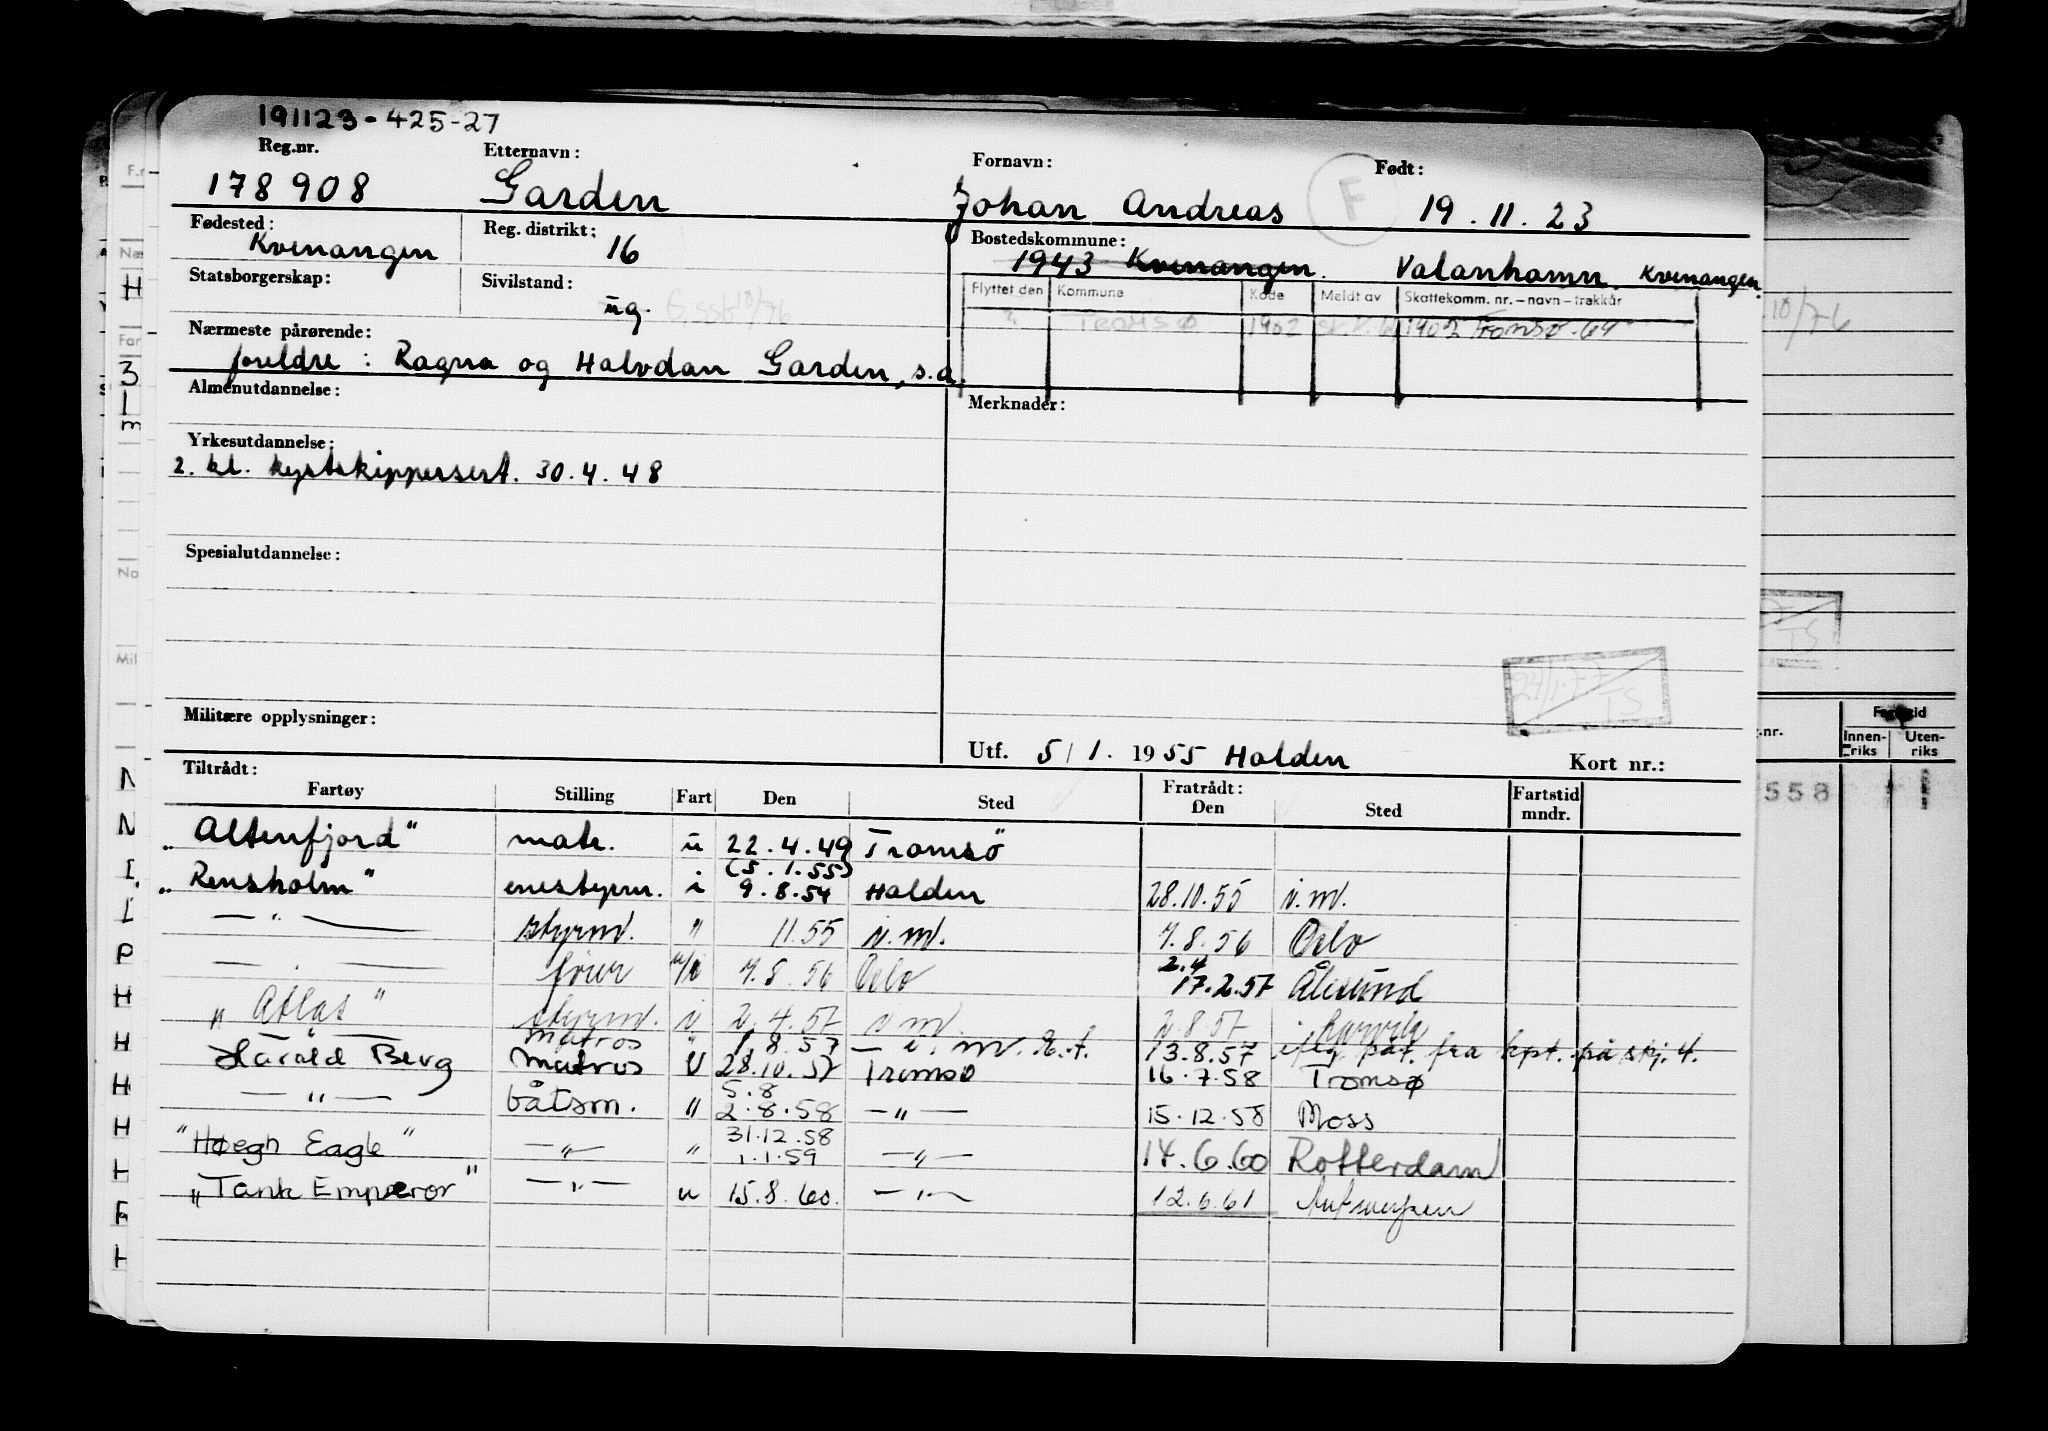 191123-425-27
Reg.nr. Etternavn: Fornavn: Født:
178908 Garden Johan Andreas F 19.11.23
Fødested: Reg. distrikt: Bostedskommune:
Kvenangen 16 1943 Kvenangen. Valanhamn. Kvenangen.
Statsborgerskap: Sivilstand: Flyttet den Kommune Kode Meldt av Skattekomm. nr. – navn – trekkår
ug. Tromsø 1902 1902 Tromsø - 64
10/76
Nærmeste pårørende:
foreldre : Ragna og Halvdan Garden, s.a.
Almenutdannelse: Merknader:
Yrkesutdannelse:
2. kl. kystskippersert. 30.4.48
Spesialutdannelse:
24/1-77 TS
Militære opplysninger:
Utf. 5/1. 1955 Halden Kort nr.:
Tiltrådt: Fratrådt:
Fartøy Stilling Fart Den Sted Den Sted Fartstid mndr.
„Altenfjord" matr. u 22.4.49 Tromsö
(5.1.55)
„Rensholm" enestyrm. i 9.8.54 Halden 28.10.55 i.m.
— " — styrmd. " 11.55 i.m. 7.8.56 Oslo
2.4
— . — u/i 7.8.56 Oslo 17.2.57 Ålesund
„Atlas" styrmd. i 2.4.57 i.m. 2.8.57
matros " 1.8.57 — i.m. 13.8.57 fra kpt. på skj. 4.
Harald Berg Matros U 28.10.57 Tromsø 16.7.58 Tromsø
5.8
— " — båtsm. " 2.8.58 — " — 15.12.58 Moss
31.12.58
"Høegh Eagle" — " — " 1.1.59 — " — 14.6.60 Rotterdam
„Tank Emperor" — " — u 15.8.60. — " — 12.6.61 Antwerpen
Fartstid
Innenriks Utenriks
558